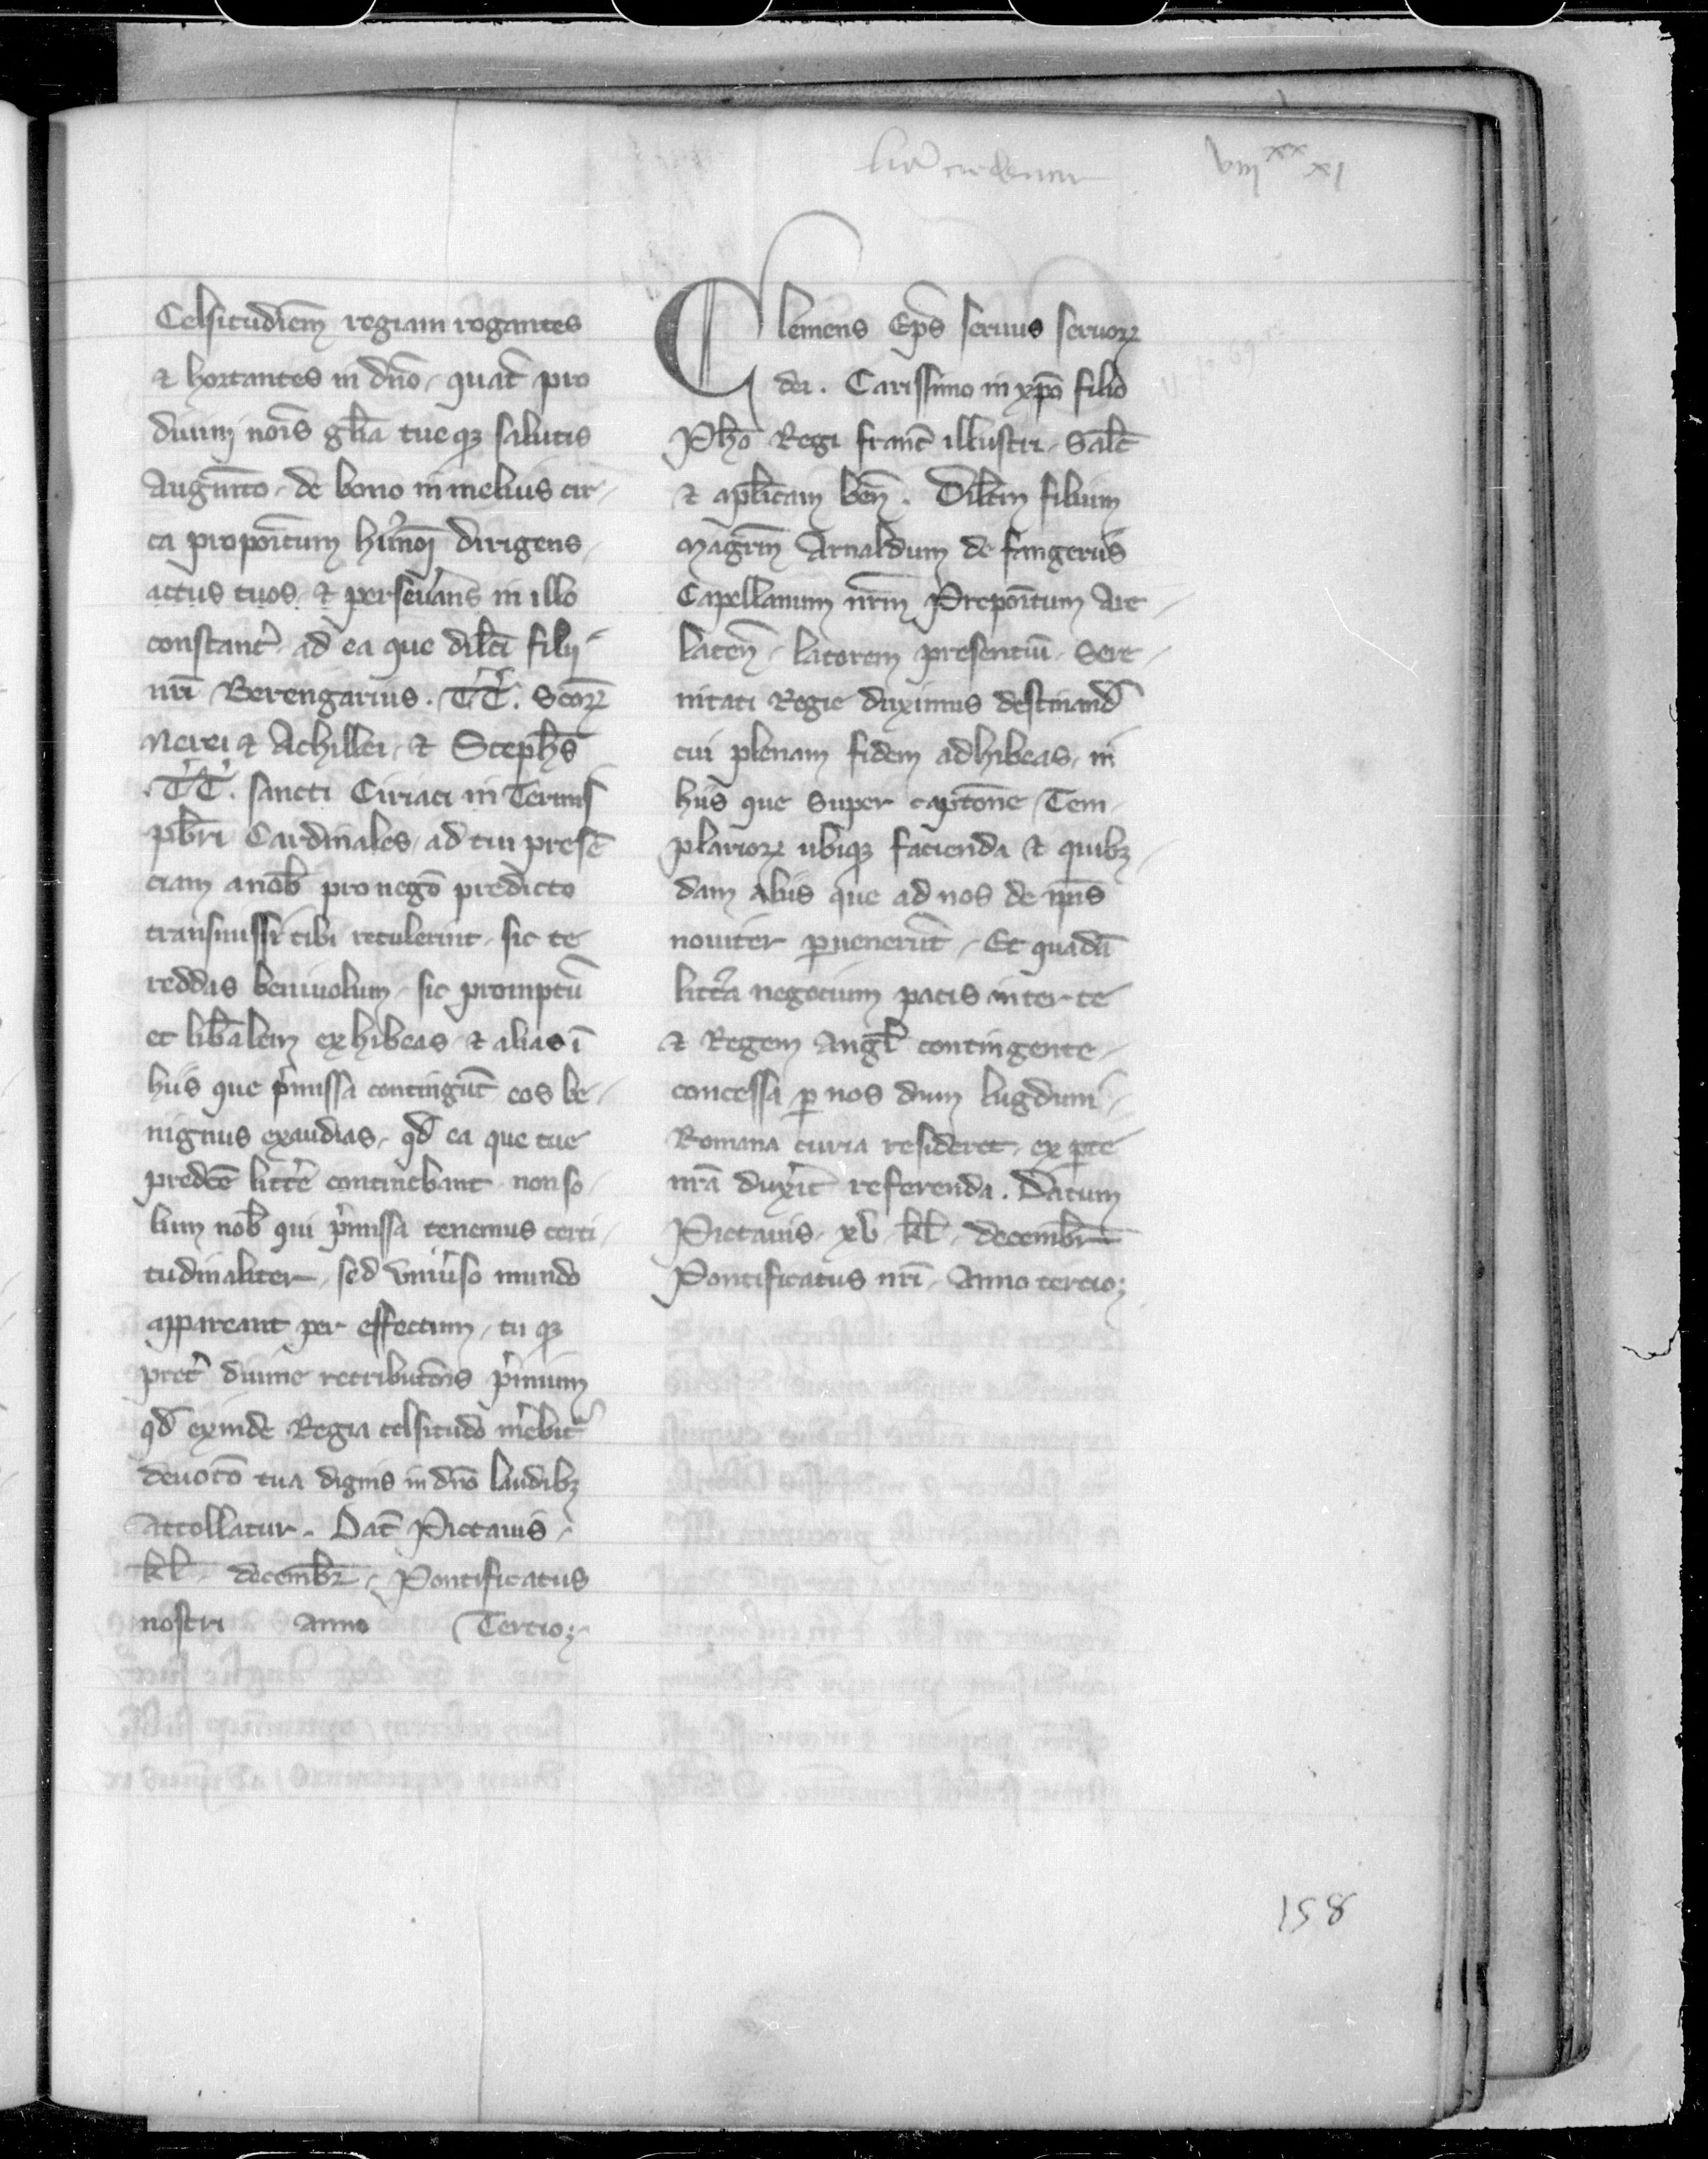 viii xx xi
Celsitudinē regiam rogantes
⁊ hortantes in dño, quat̄ pro
diuini nois gl̄ia tueqꝫ salutis
Augm̄to, de bono in melius cir
ca propoitum hui̾moi dirigens
actus tuos, ⁊ perseu̾ans in illo
constant̾ ad ea que dilc̄i filij
nr̄i Berengarius. TT. Scoꝝ
Nerei ⁊ Achillei, ⁊ Stephs̄
.TT. sancti Ciriaci in Termis
pbr̄i Cardinales, ad tui presē
ciam anob̄ pro negō predicto
transmissi tibi retulerint, sic te
reddas beniuolum, sic promptū
et lib̄alem exhibeas ⁊ alias ī
hiis que p̾missa contingūt eos be
nignus exaudias, qd̄ ea que tue
predcē litt̾e continebant non so
lum nob̄ qui p̾missa tenemus certi
tudinaliter, sed vniu̾so mundo
appareant per effectum, tu qꝫ
pret̾ diuine retributōis p̾mium
qd̄ exinde Regia celsitudo m̾ebit̾
deuotō tua dignis in dño laudibꝫ
Attollatur. Dat̄ Pictauis,
kl̄. decembꝝ, Pontificatus
nostri Anno Tercio;
Clemens Ep̄s seruus seruoꝝ
dei. Carissimo in xp̄o filio
Ph̄o Regi franc̄ illustri, Salt̄
⁊ apl̄icam ben̄. Dilc̄m filium
Magrm̄ Arnaldum de fangeriis
Capellanum nr̄m Prepoitum Are
laten̄, latorem presentiū, Sere
nitati Regie duximus destinand̄
cui plenam fidem adhibeas, in
hiis que super captōne Tem
plarioꝝ ubiqꝫ facienda ⁊ quibꝫ
dam aliis que ad nos de nr̄is
nouiter ꝑuenerūt, Et quadā
litt̾a negocium pacis inter te
⁊ Regem Angl̄ contingente
concessa ꝑ nos dum lugduni
Romana curia resideret, ex ꝑte
nr̄a dux̾it referenda. Datum
Pictauis, xv kl̄, decembꝝ
Pontificatus nr̄i, Anno tercio;
158